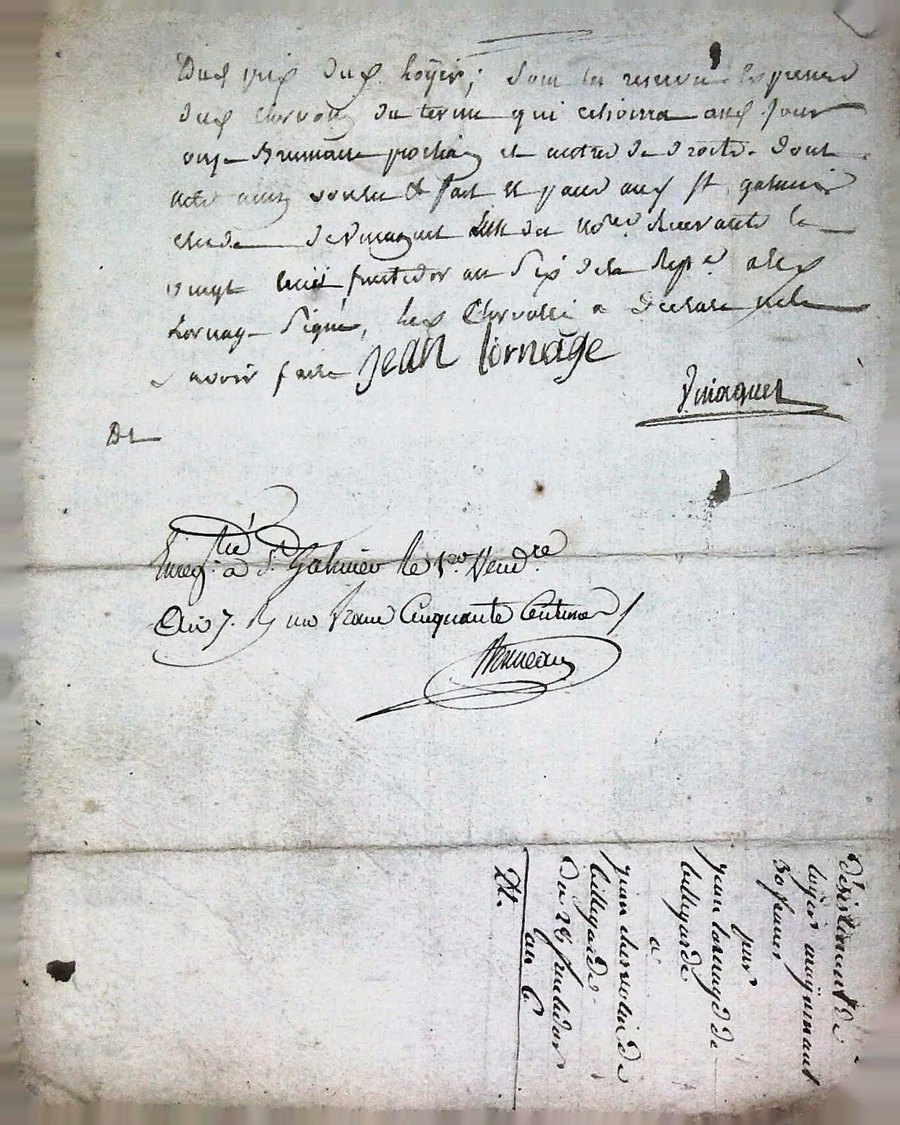 Dud prix dud loyer; sous la reserve Expresse
dud chervolin du terme qui echoirra aud. jour
onze Brumaire prochain et autres de droits. dont
acte ainsi voulu & fait et passé aud St galmier
etude de vinagnet L'un des no.res Recevants le
vingt huit fructidor an six de la Rep.e aled
Lornage signé, led Chervolin a declaré ne le
savoir faire Jean lornage
Vinagnet
DL
Enreg.tré à S.t Galmier le 1.er Vend.re
An 7. R un franc Cinquante Centimes
désistement de
loyer moyennant
30 francs
par
jean lornage de
bellegarde
a
jean chervolin de
bellegarde
du 28 fructidor
an 6